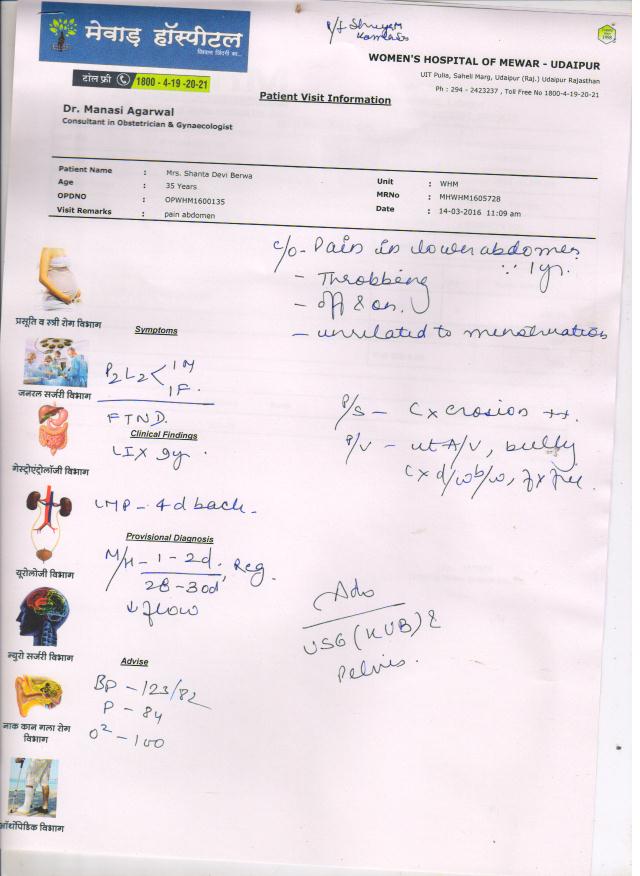 मेवाड़ हॉस्पीटल
टोल फ्री 1800 - 4-19 -20-21
WOMEN'S HOSPITAL OF MEWAR - UDAIPUR
UIT Pulia, Saheli Marg, Udaipur (Raj.) Udaipur Rajasthan
Ph : 294 - 2423237 , Toll Free No 1800-4-19-20-21
Patient Visit Information
Dr. Manasi Agarwal
Consultant in Obstetrician & Gynaecologist
Patient Name : Mrs. Shanta Devi Berwa
Unit : WHM
Age : 35 Years
MRNo : MHWHM1605728
OPDNO : OPWHM1600135
Date : 14-03-2016 11:09 am
Visit Remarks : pain abdomen
c/o - Pain in lower abdomen
∵ 1yr.
- Throbbing
- off & on.
- unrelated to menstruation
प्रसूति व स्त्री रोग विभाग
Symptoms
P2L2 < 1M
1F.
जनरल सर्जरी विभाग
FTND.
P/S - Cx erosion ++.
Clinical Findings
LIX 9yr.
P/V - ut A/V, bulky
Cx d/w b/w, fx free.
गेस्ट्रोएंट्रोलॉजी विभाग
LMP - 4d back -
Provisional Diagnosis
M/H - 1 - 2d. , Reg.
28 - 30d
↓ flow
यूरोलोजी विभाग
Adv
USG (KUB) &
Pelvis.
न्युरो सर्जरी विभाग
Advise
BP - 123/82
P - 84
O² - 100
नाक कान गला रोग
विभाग
ऑर्थोपेडिक विभाग